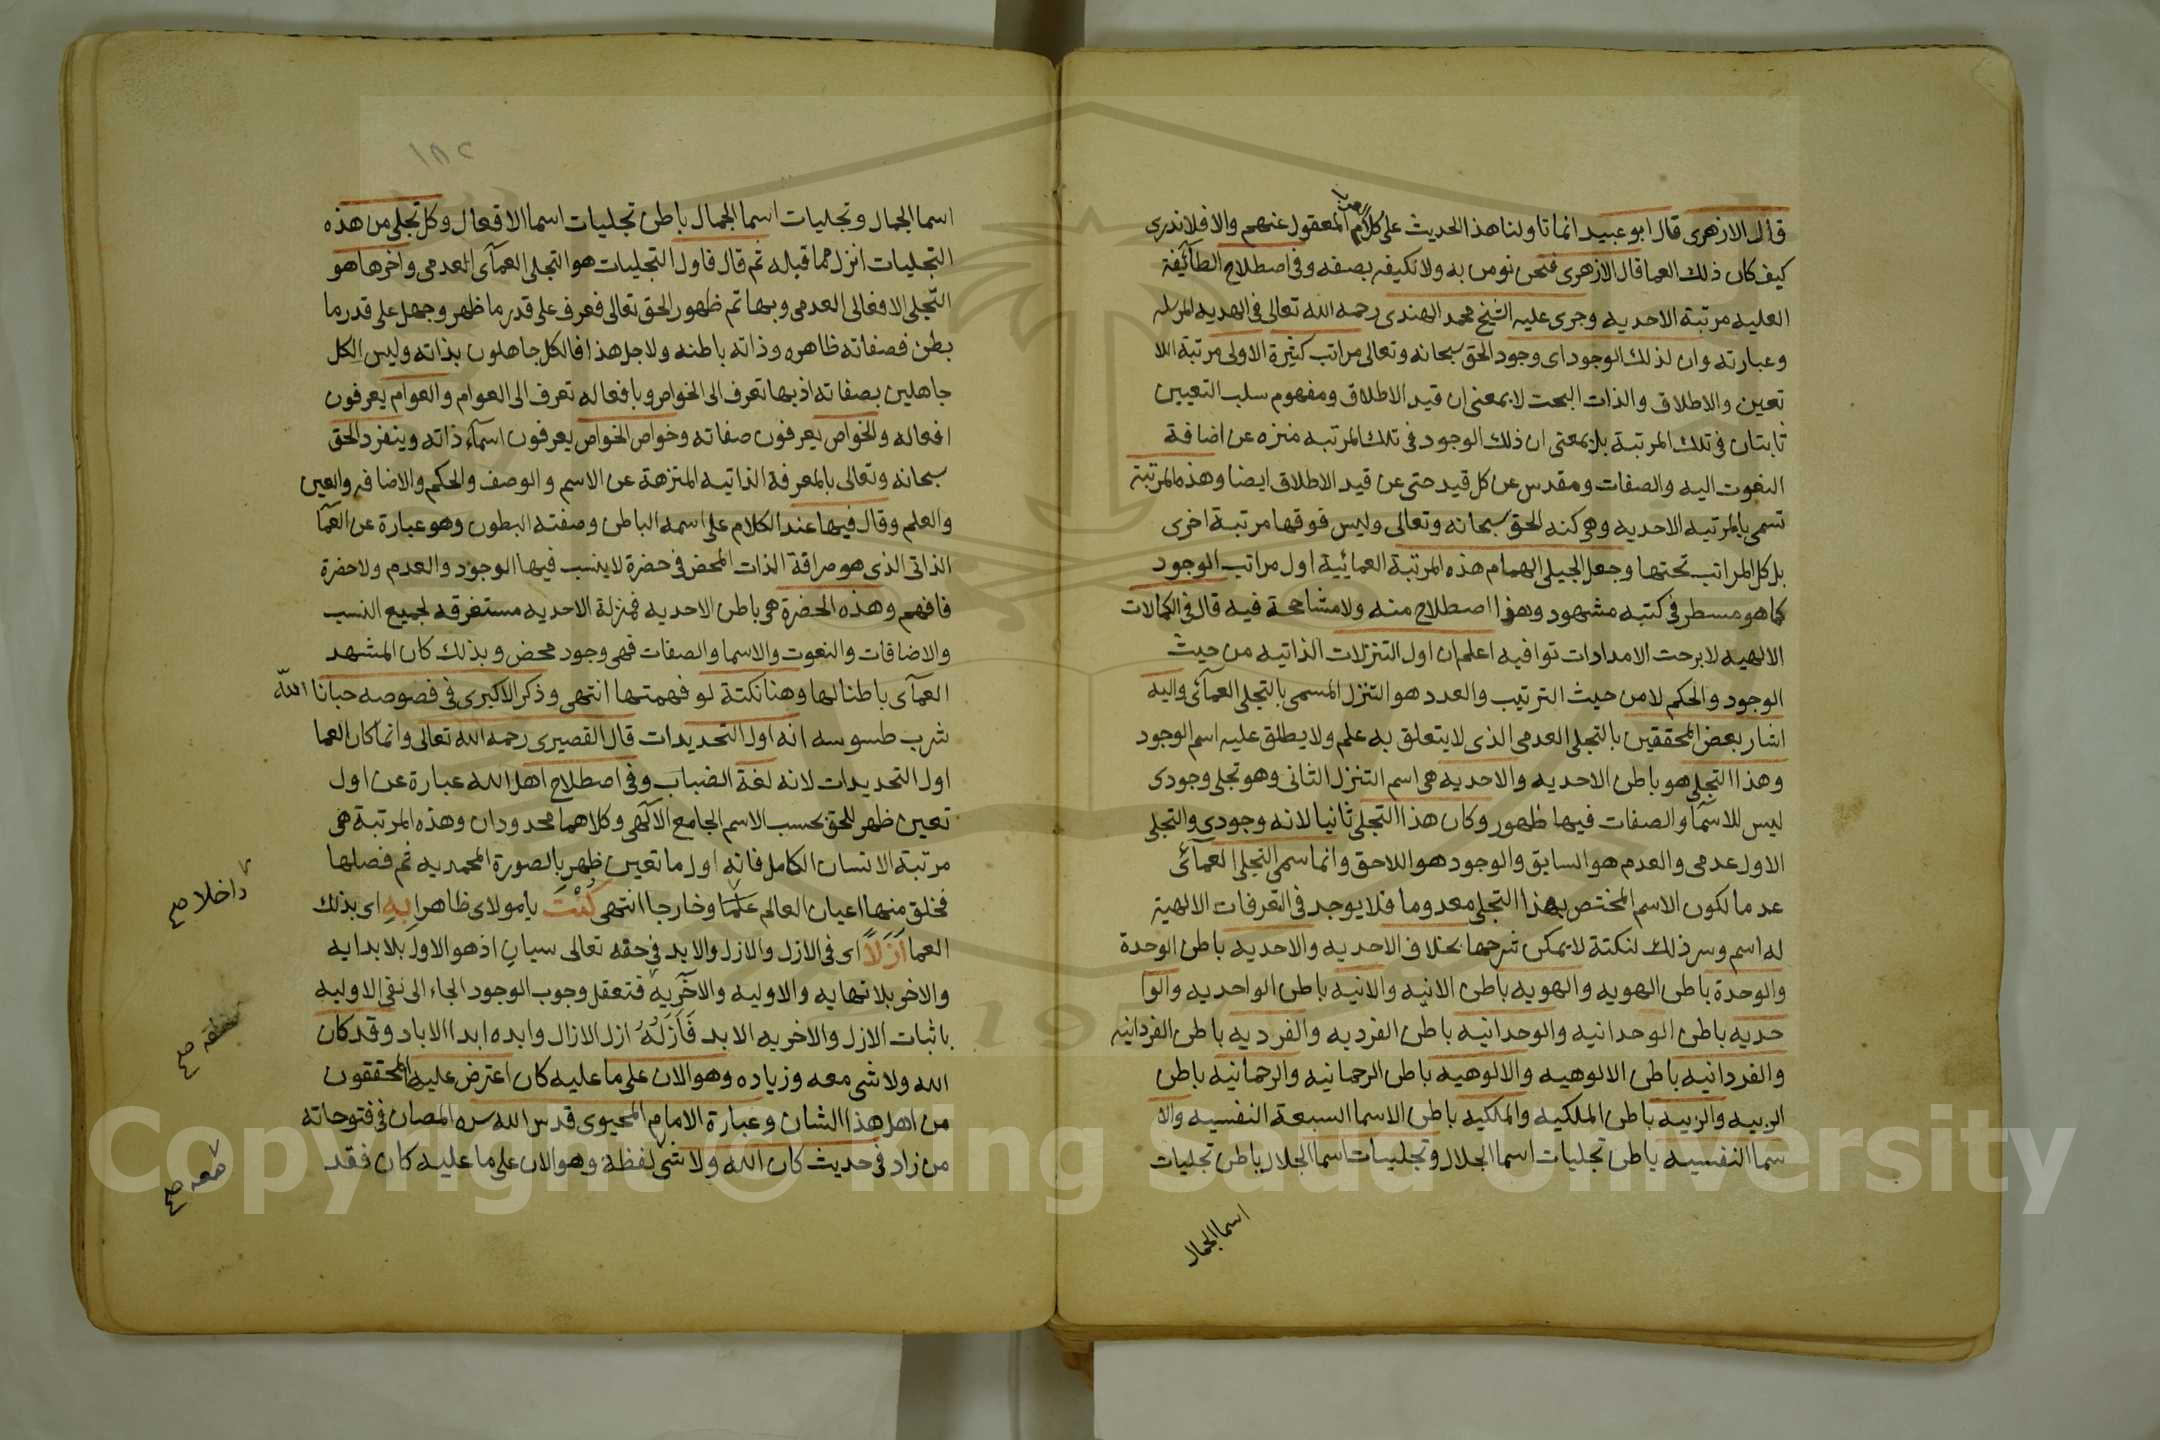 قال الازهرى قال ابو عبيد انما تاولنا هذا الحديث على كلام العرب المعقول عنهم والا فلا ندرى
كيف كان ذلك العما قال الازهرى فنحن نومن به ولا نكيفه بصفه وفى اصطلاح الطآئفة
العليه مرتبة الاحديه وجرى عليه الشيخ محمد الهندى رحمه الله تعالى فى الهديه المرسله
وعبارته وان لذلك الوجود اى وجود الحق سبحانه وتعالى مراتب كثيرة الاولى مرتبة اللا
تعين والاطلاق والذات البحت لا بمعنى ان قيد الاطلاق ومفهوم سلب التعيين
ثابتان فى تلك المرتبة بل بمعنى ان ذلك الوجود فى تلك المرتبه منزه عن اضافة
النعوت اليه والصفات ومقدس عن كل قيد حتى عن قيد الاطلاق ايضا وهذه المرتبة
تسمى بالمرتبه الاحديه وهى كنه الحق سبحانه وتعالى وليس فوقها مرتبة اخرى
بل كل المراتب تحتها وجعل الجيلى الهمام هذه المرتبة العمائية اول مراتب الوجود
كما هو مسطر فى كتبه مشهود وهذا اصطلاح منه ولا مشاححة فيه قال فى الكمالات
الالهيه لا برحت الامدادات توافيه اعلم ان اول التنزلات الذاتيه من حيث
الوجود والحكم لا من حيث الترتيب والعدد هو التنزل المسمى بالتجلى العمآئى واليه
اشار بعض المحققين بالتجلى العدمى الذى لا يتعلق به علم ولا يطلق عليه اسم الوجود
وهذا التجلى هو باطن الاحديه والاحديه هى اسم التنزل الثانى وهو تجلى وجودى
ليس للاسما والصفات فيها ظهور وكان هذا التجلى ثانيا لانه وجودى والتجلى
الاول عدمى والعدم هو السابق والوجود هو اللاحق وانما سمى التجلى العمآئى
عدما لكون الاسم المختص بهذا التجلى معدوما فلا يوجد فى التعرفات الالهية
له اسم وسر ذلك لنكتة لا يمكن شرحها بخلاف الاحديه والاحديه باطن الوحدة
والوحدة باطن الهويه والهويه باطن الانيه والانيه باطن الواحديه والوا
حديه باطن الوحدانيه والوحدانيه باطن الفرديه والفرديه باطن الفردانيه
والفردانيه باطن الالوهيه والالوهيه باطن الرحمانيه والرحمانيه باطن
الربيه والربيه باطن الملكيه والملكيه باطن الاسما السبعة النفسيه والا
سما النفسيه باطن تجليات اسما الجلال وتجليات اسما الجلال باطن تجليات
اسما الجمال
١٨٢
اسما الجمال وتجليات اسما الجمال باطن تجليات اسما الافعال وكل تجلى من هذه
التجليات انزل مما قبله ثم قال فاول التجليات هو التجلى العمآى العدمى واخرها هو
التجلى الافعالى العدمى وبها تم ظهور الحق تعالى فعرف على قدر ما ظهر وجهل على قدر ما
بطن فصفاته ظاهره وذاته باطنه ولاجل هذا فالكل جاهلون بذاته وليس الكل
جاهلين بصفاته اذ بها تعرف الى الخواص وبافعاله تعرف الى العوام والعوام يعرفون
افعاله والخواص يعرفون صفاته وخواص الخواص يعرفون اسمآء ذاته وينفرد الحق
سبحانه وتعالى بالمعرفة الذاتيه المتنزهة عن الاسم والوصف والحكم والاضافه والعين
والعلم وقال فيها عند الكلام على اسمه الباطن وصفته البطون وهو عبارة عن العمآ
الذاتى الذى هو صرافة الذات المحض فى حضرة لا ينسب فيها الوجود والعدم ولا حضرة
فافهم وهذه الحضرة هى باطن الاحديه فمنزلة الاحديه مستغرقه لجميع النسب
والاضافات والنعوت والاسما والصفات فهى وجود محض وبذلك كان المشهد
العمآى باطنا لها وهنا نكتة لو فهمتها انتهى وذكر الاكبرى فى فصوصه حبانا الله
شرب طسوسه انه اول التحديدات قال القصيرى رحمه الله تعالى وانما كان العما
اول التحديدات لانه لغة الضباب وفى اصطلاح اهل الله عبارة عن اول
تعين ظهر للحق بحسب الاسم الجامع الآلهى وكلاهما محدودان وهذه المرتبة هى
مرتبة الانسان الكامل فانه اول ما تعين ظهر بالصورة المحمديه ثم فصلها
فخلق منها اعيان العالم علما وخارجا انتهى كنت يا مولاى ظاهرا به اى بذلك
العما ازلا اى فى الازل والازل والابد فى حقه تعالى سيان اذ هو الاول بلا بدايه
والاخر بلا نهايه والاوليه والآخريه فتعقل وجوب الوجود الجاء الى نفى الاوليه
باثبات الازل والاخريه الابد فازله ازل الازال وابده ابد الاباد وقد كان
الله ولا شى معه وزياده وهو الان على ما عليه كان اعترض عليه المحققون
من اهل هذا الشان وعبارة الامام المحيوى قدس الله سره المصان فى فتوحاته
من زاد فى حديث كان الله ولا شى لفظة وهو الان على ما عليه كان فقد
داخلا صح
صح
معه صح